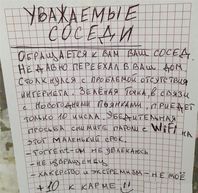 УВАЖАЕМЫЕ
СОСЕДИ
ОБРАЩАЕТСЯ К ВАМ ВАШ СОСЕД.
НЕДАВНО ПЕРЕЕХАЛ В ВАШ ДОМ,
СТОЛКНУЛСЯ С ПРОБЛЕМОЙ ОТСУТСТВИЯ
ИНТЕРНЕТА. ЗЕЛЁНАЯ ТОЧКА, В СВЯЗИ
С НОВОГОДНИМИ ПЬЯНКАМИ, ПРИЕДЕТ
ТОЛЬКО 10 ЧИСЛА. УБЕДИТЕЛЬНАЯ
ПРОСЬБА СНИМИТЕ ПАРОЛЬ С WiFi НА
ЭТОТ МАЛЕНЬКИЙ СРОК.
- ТОРРЕНТОМ НЕ УВЛЕКАЮСЬ
- НЕ ИЗВРАЩЕНЕЦ
- ХАКЕРСТВО И ЭКСТРЕМИЗМ - НЕ МОЁ
+10 К КАРМЕ!!